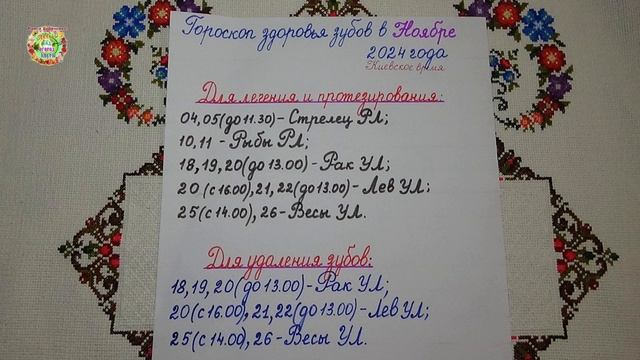 Гороскоп здоровья зубов в Ноябре
2024 года
Киевское время
Для легения и протезирования:
04,05(до 11.30)-Стрелец РЛ;
10,11 - Рыбы РЛ;
18,19,20(до 13.00)-Рак УЛ;
20(с 16.00),21,22(до 13.00)-Лев УЛ;
25(с 14.00),26-Весы УЛ.
Для удаления зубов:
18,19,20(до 13.00)-Рак УЛ;
20(с 16.00),21,22(до 13.00)-Лев УЛ;
25(с 14.00),26-Весы УЛ.